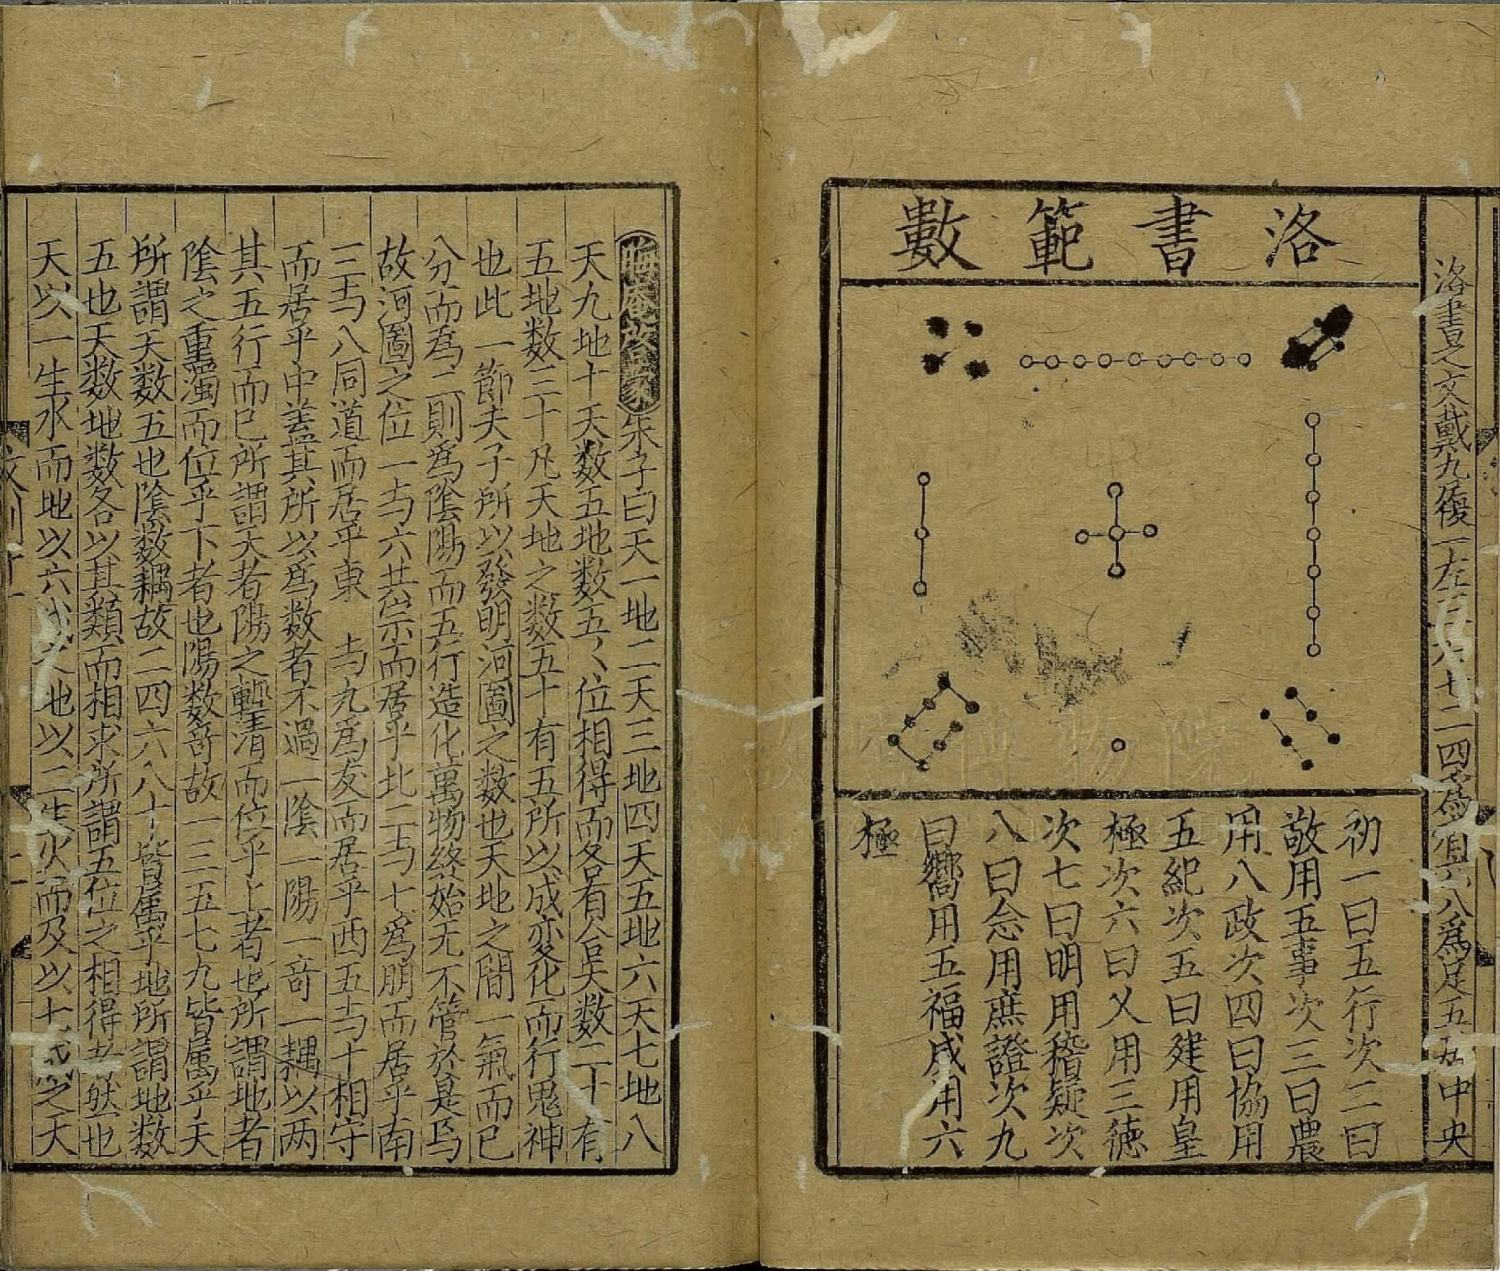 洛書之文戴九履一左七二四爲肩六八爲足五中央
洛書範數
初一曰五行次二曰
敬用五事次三曰農
用八政次四曰協用
五紀次五曰建用皇
極次六曰乂用三德
次七曰明用稽疑次
八曰念用庶證次九
曰嚮用五福威用六
極
晦庵啓蒙朱子曰天一地二天三地四天五地六天七地八
天九地十天数五地数五〻位相得而各有合天数二十有
五地数三十凡天地之数五十有五所以成変化而行鬼神
也此一節夫子所以發明河圖之数也天地之間一氣而已
分而爲二則爲陰陽而五行造化萬物終始无不管於是焉
故河圖之位一与六共宗而居乎北二与七爲朋而居乎南
三与八同道而居乎東 与九爲友而居乎西五与十相守
而居乎中盖其所以爲数者不過一陰一陽一奇一耦以两
其五行而已所謂天者陽之輕清而位乎上者也所謂地者
陰之重濁而位乎下者也陽数奇故一三五七九皆属乎天
所謂天数五也陰数耦故二四六八十皆属乎地所謂地数
五也天数地数各以其類而相求所謂五位之相得者然也
天以一生水而地以六地以二生火而及以七成之天